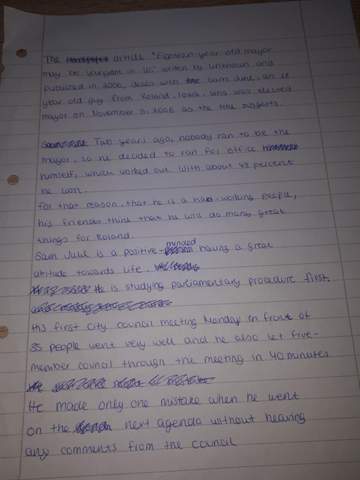 The article "Eighteen year old mayor
may be youngest in US" written by unknown and
published in 2006, deals with Sam Juhl, an 18
year old guy from Roland, Iowa and was elected
mayor on November 8, 2006 as the title suggests.
Two years ago, nobody ran to be the
mayor, so he decided to run for office
himself, which worked out with about 42 percent
he won.
For that reason, that he is a hard-working people,
his friends think that he will do many great
things for Roland.
Sam Juhl is a positive-minded having a great
attitude towards life.
He is studying parliamentary procedure first.
His first city council meeting Monday in front of
35 people went very well and he also let five-
member council through the meeting in 40 minutes.
He made only one mistake when he went
on the next agenda without hearing
any comments from the council